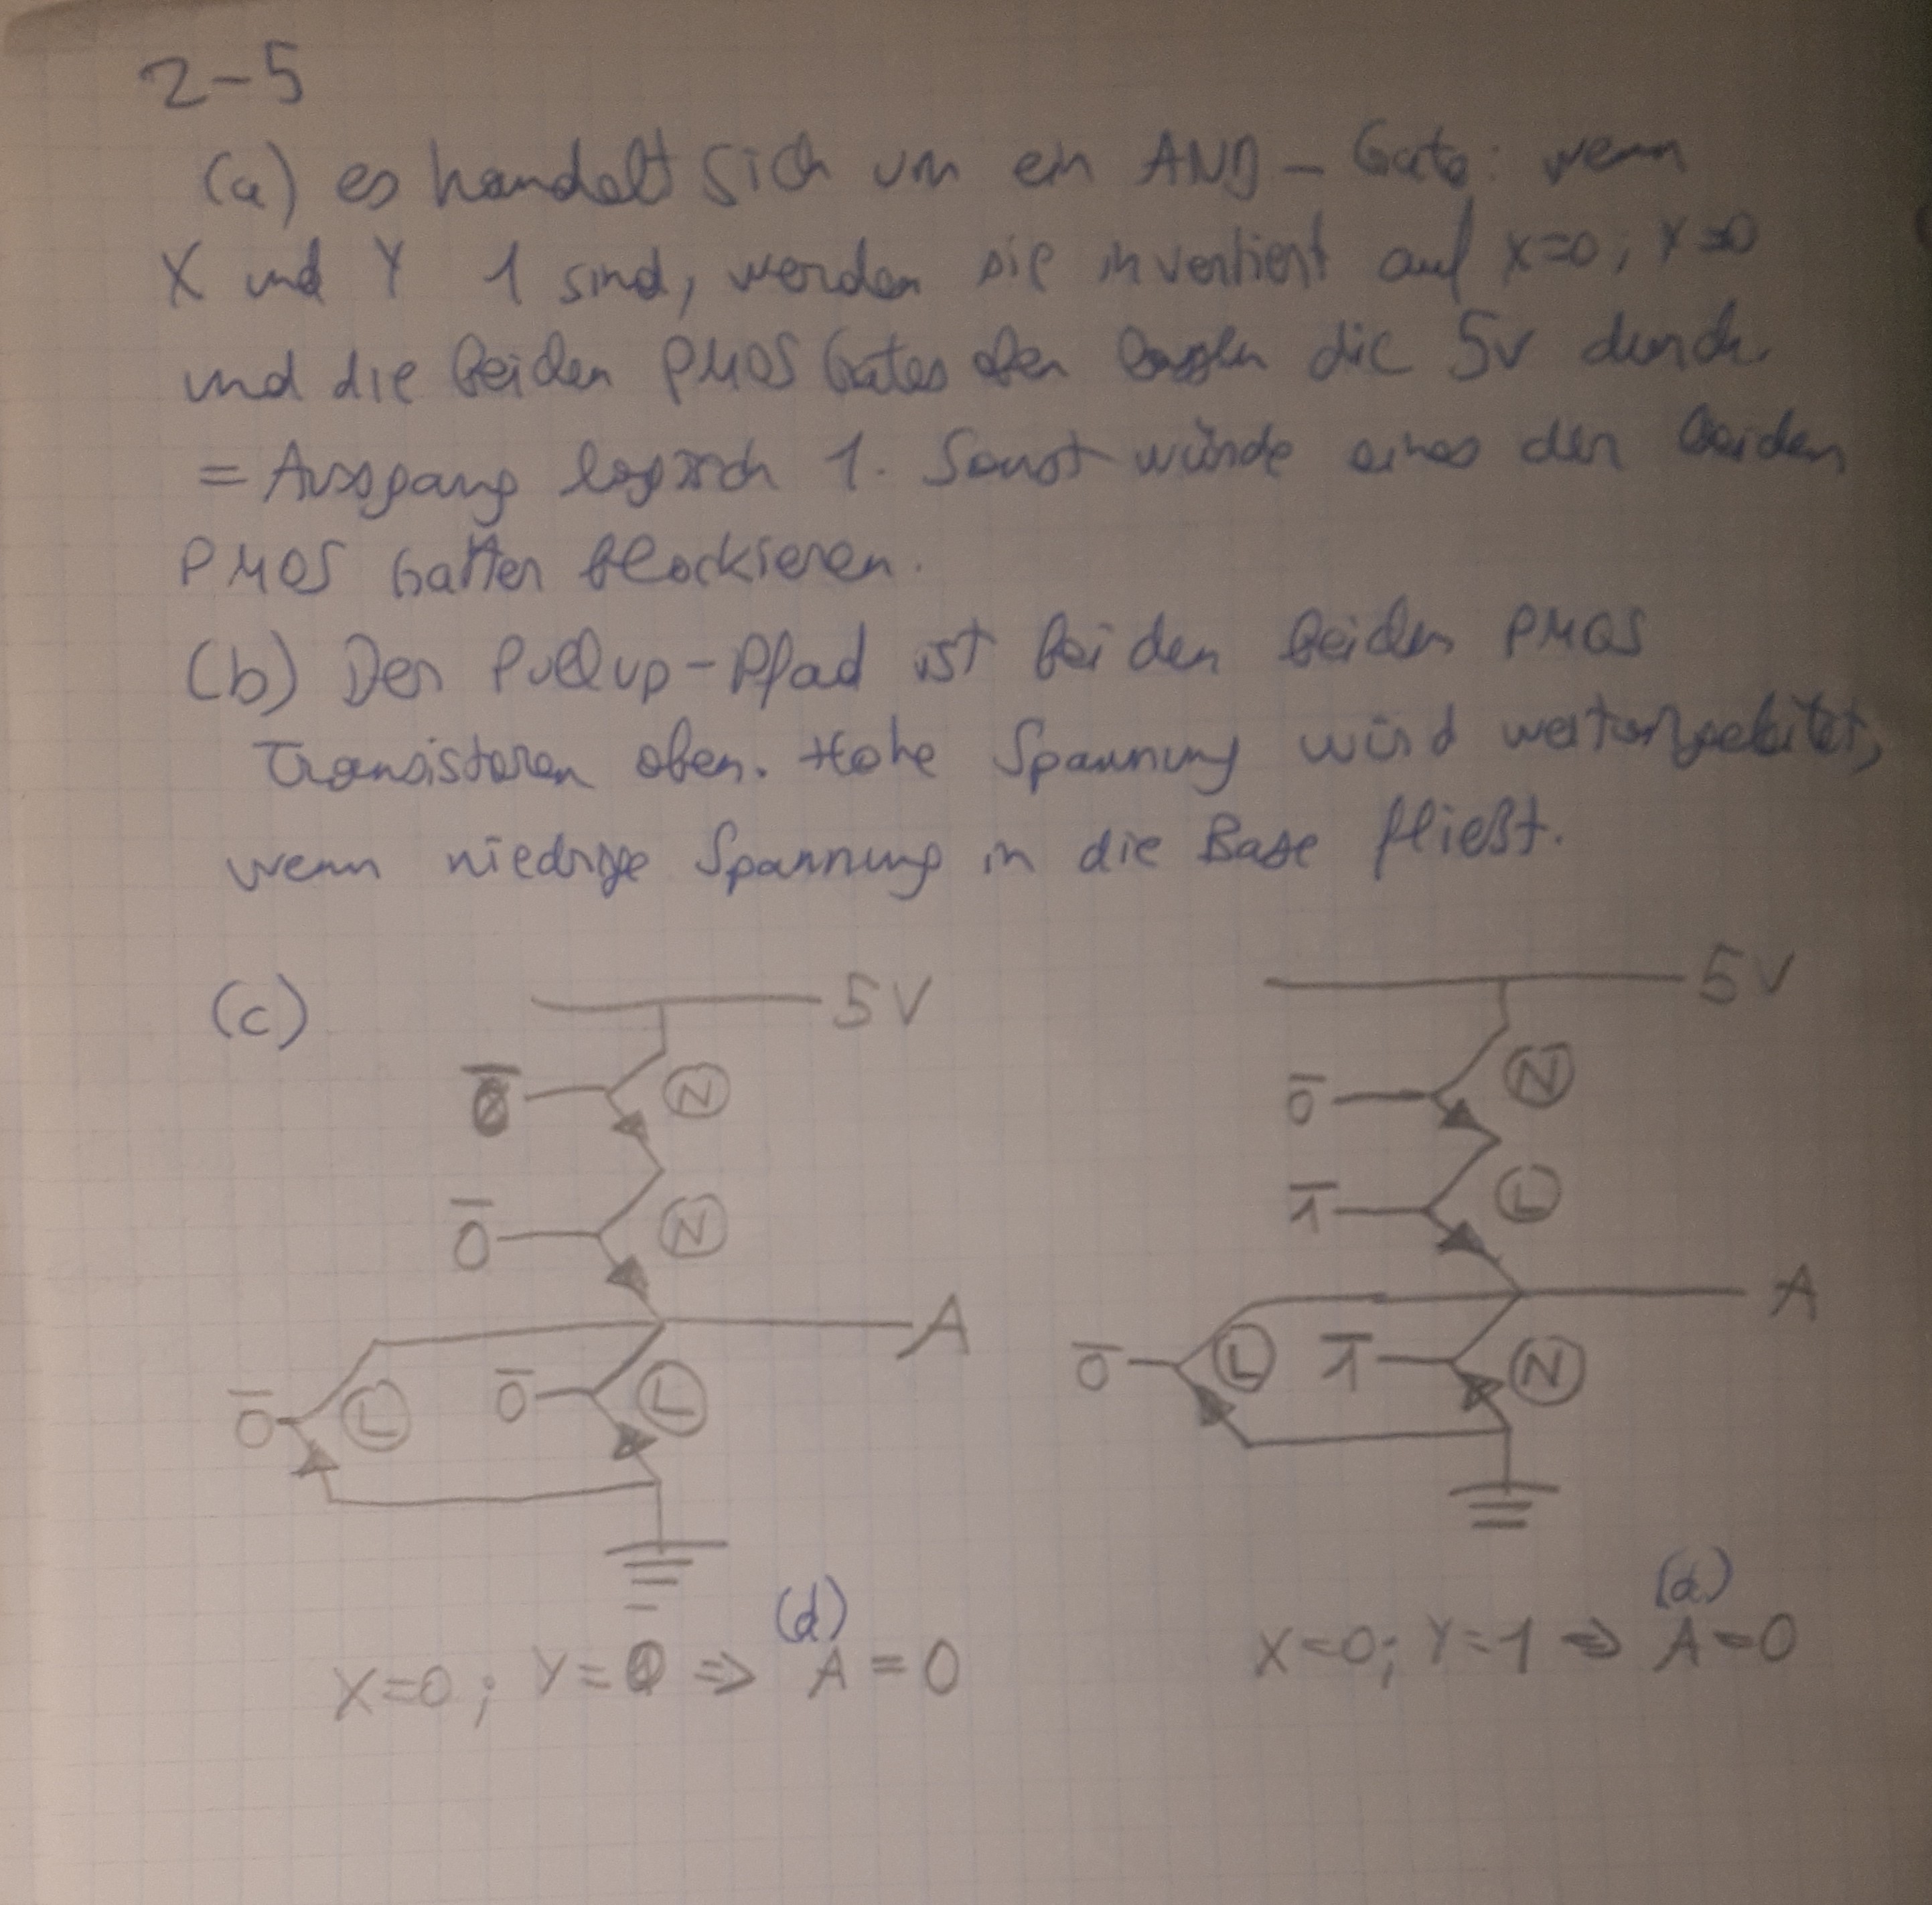 2-5
(a) es handelt sich um ein AND - Gate: wenn
X und Y 1 sind, werden sie invertiert auf X=0, Y=0
und die beiden PMOS Gates oben lassen die 5V durch
= Ausgang logisch 1. Sonst würde eines der beiden
PMOS Gatter blockieren.
(b) Der Pullup-Pfad ist bei den beiden PMOS
Transistoren oben. Hohe Spannung wird weitergeleitet,
wenn niedrige Spannung in die Base fließt.
(c)
5V
0̅ N
0̅ N
A
0̅ L 0̅ L
(d)
X=0; Y=0 ⇒ A=0
5V
0̅ N
1̅ L
A
0̅ L 1̅ N
(d)
X=0; Y=1 ⇒ A=0